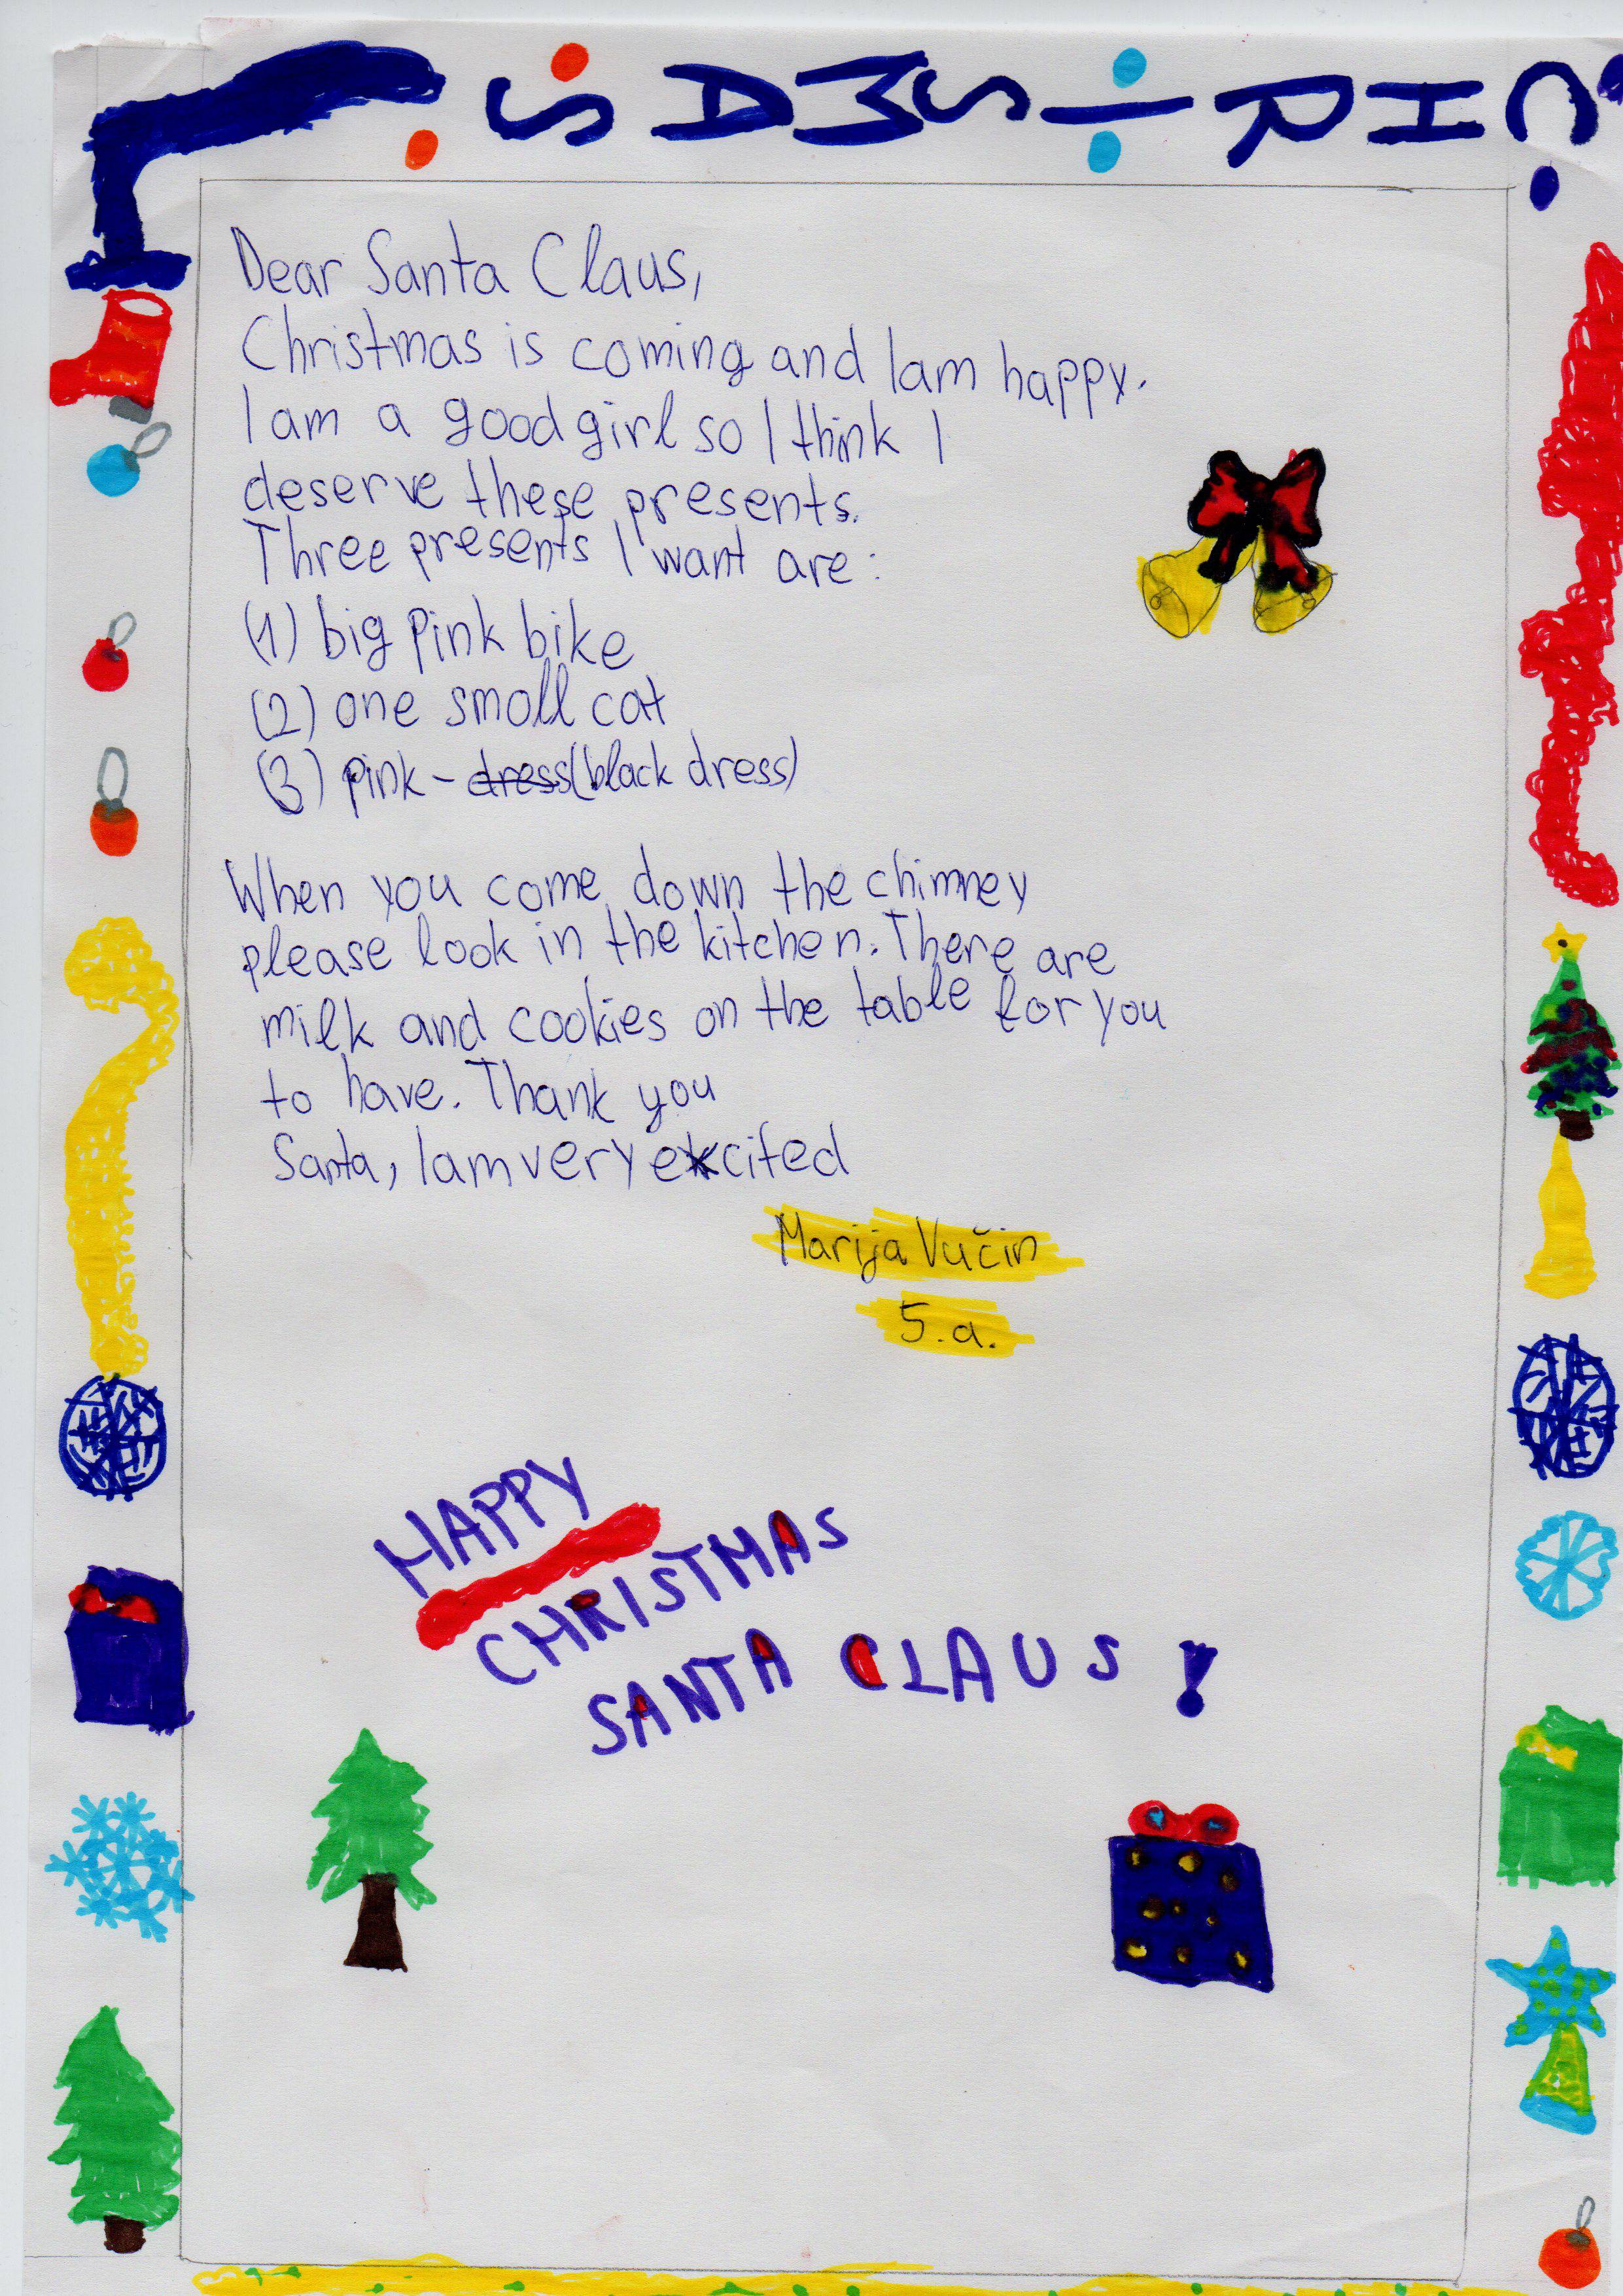 CHRISTMAS
Dear Santa Claus,
Christmas is coming and I am happy.
I am a good girl so I think I
deserve these presents.
Three presents I want are:
(1) big pink bike
(2) one small cat
(3) pink - dress (black dress)
When you come down the chimney
please look in the kitchen. There are
milk and cookies on the table for you
to have. Thank you
Santa, I am very excited
Marija Vučin
5.a.
HAPPY
CHRISTMAS
SANTA CLAUS!